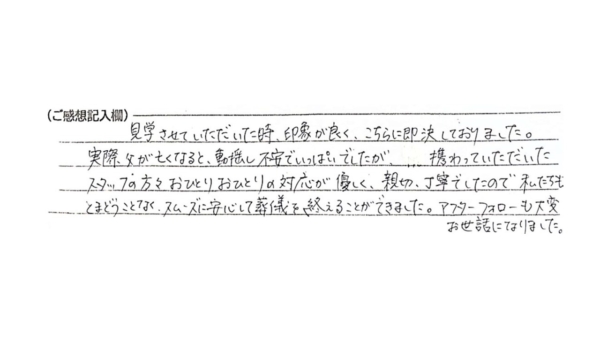 (ご感想記入欄)
見学させていただいた時、印象が良く、こちらに即決しておりました。
実際父が亡くなると、動揺し不安でいっぱいでしたが、....携わっていただいた
スタッフの方々おひとりおひとりの対応が優しく、親切、丁寧でしたので私たちも
とまどうことなく、スムーズに安心して葬儀を終えることができました。アフターフォローも大変
お世話になりました。